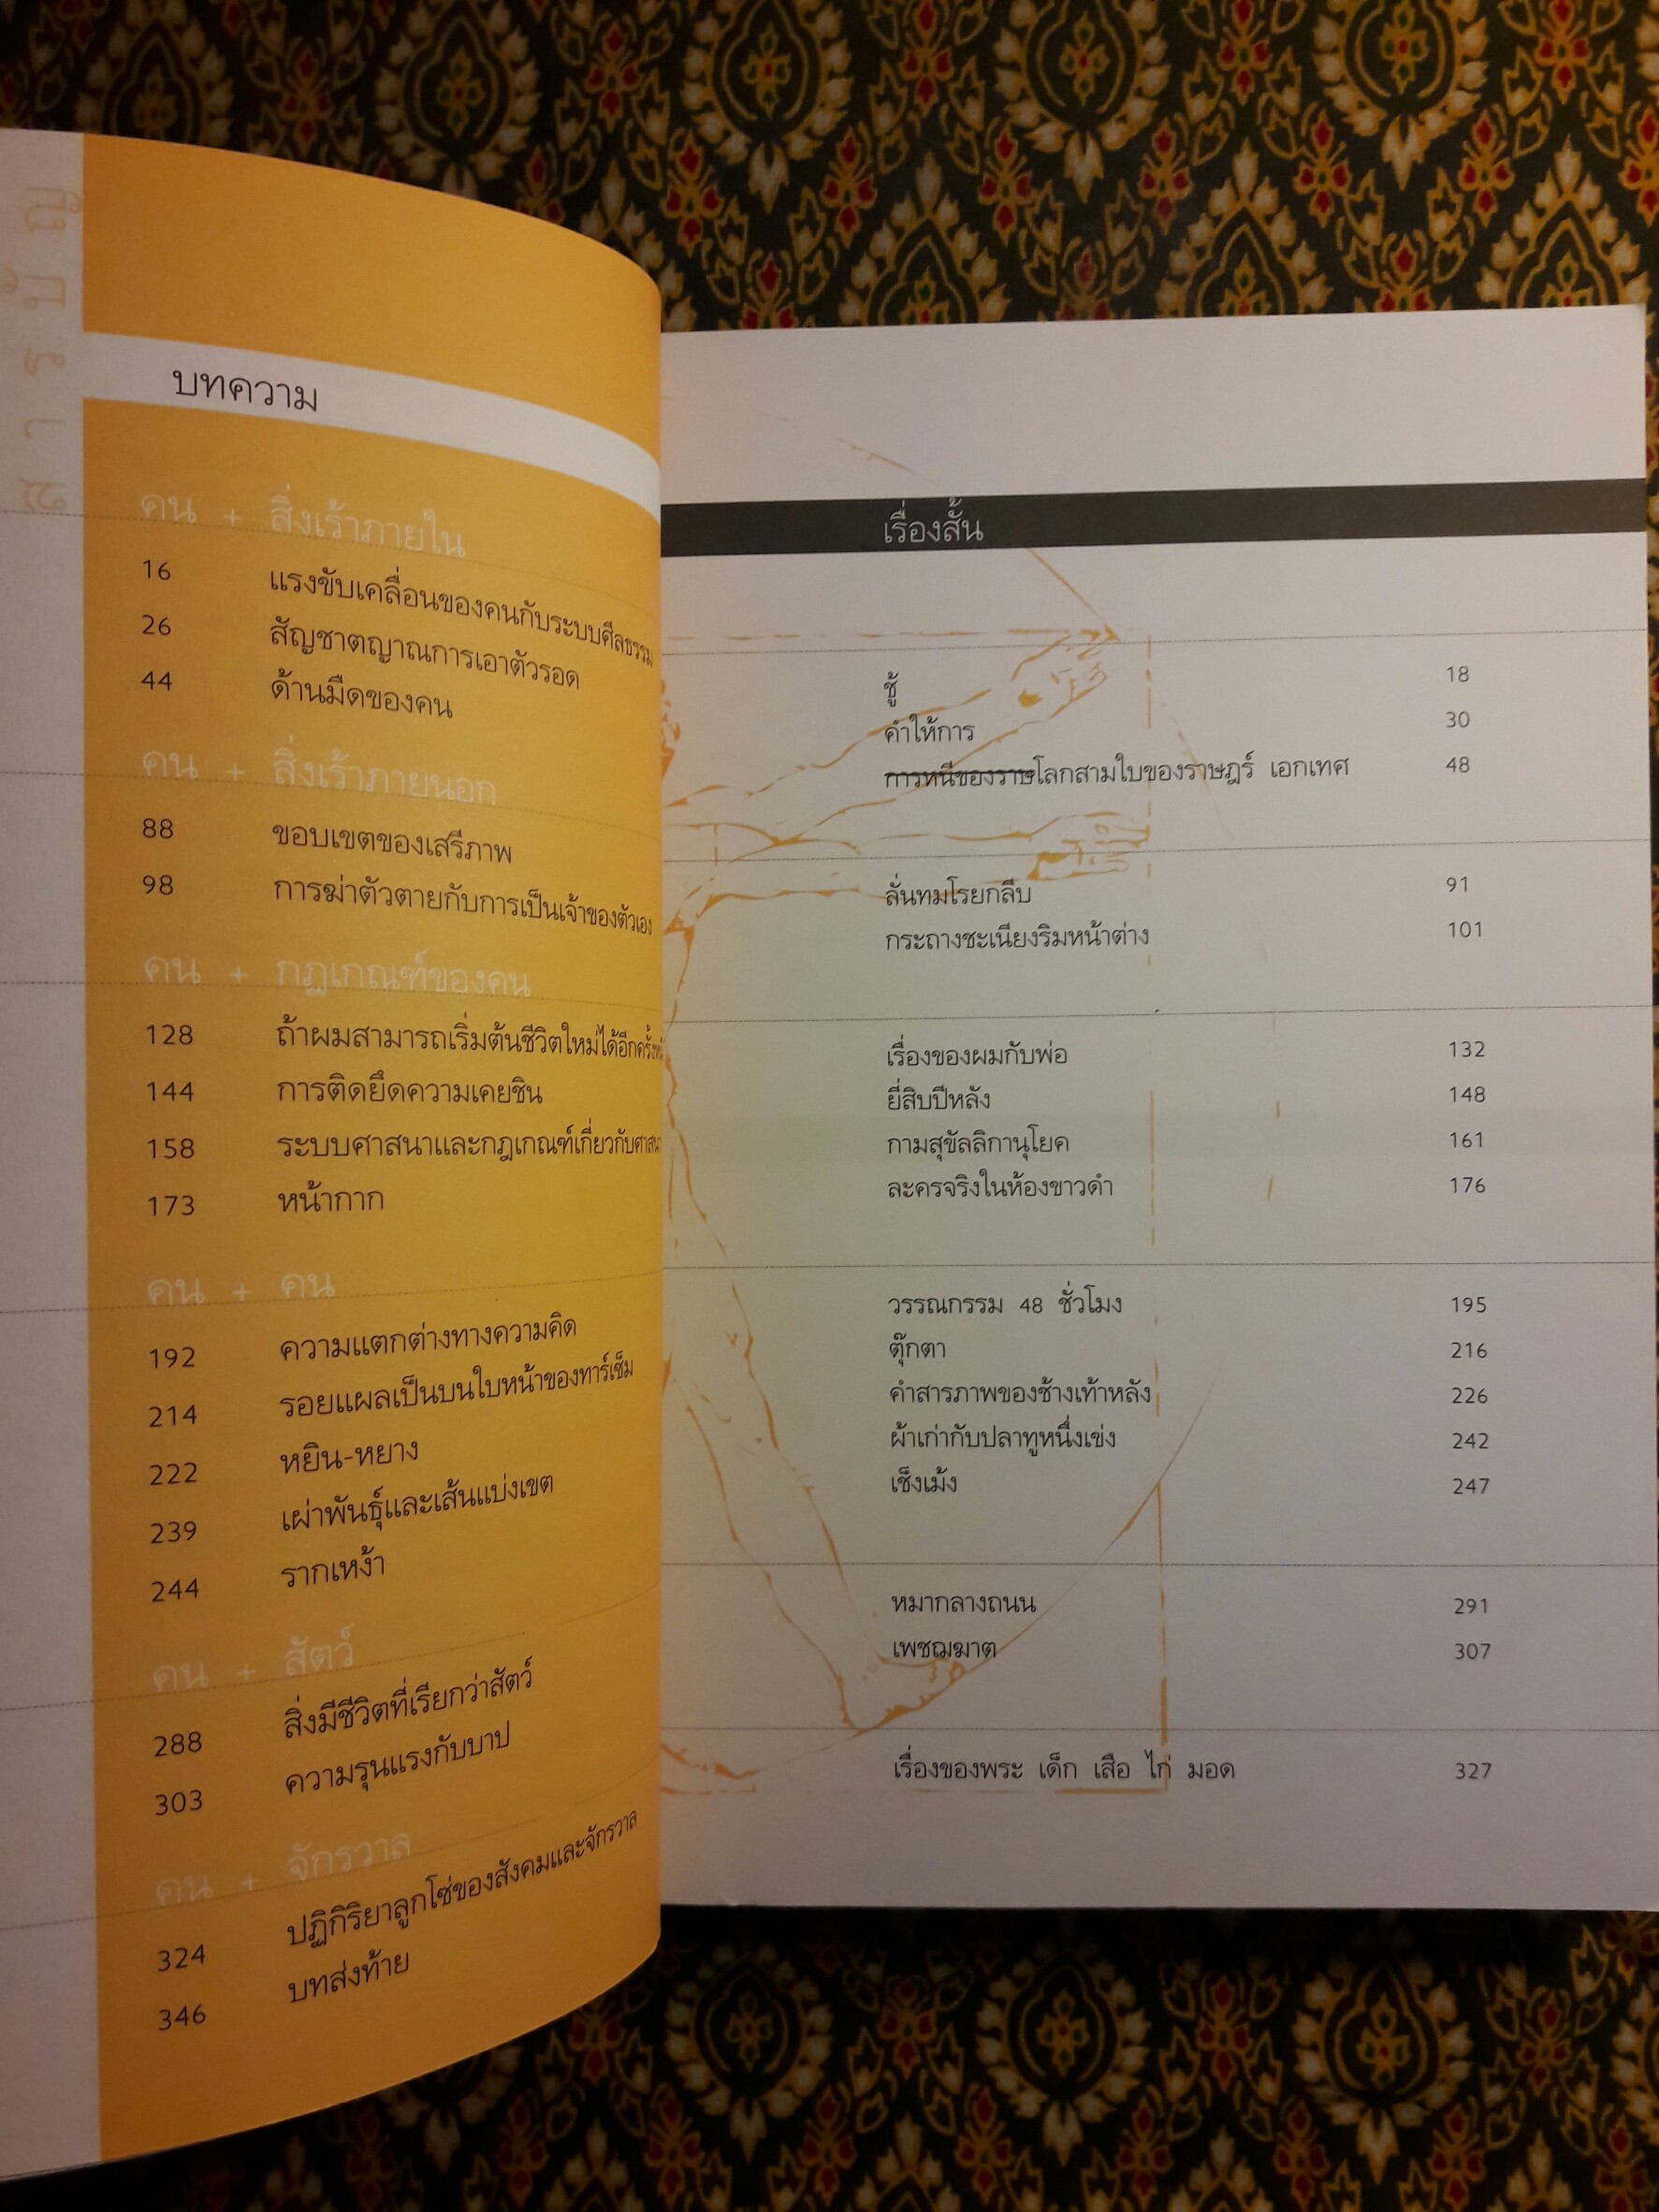 สารบัญ
บทความ
คน + สิ่งเร้าภายใน
16 แรงขับเคลื่อนของคนกับระบบศีลธรรม
26 สัญชาตญาณการเอาตัวรอด
44 ด้านมืดของคน
คน + สิ่งเร้าภายนอก
88 ขอบเขตของเสรีภาพ
98 การฆ่าตัวตายกับการเป็นเจ้าของตัวเอง
คน + กฎเกณฑ์ของคน
128 ถ้าผมสามารถเริ่มต้นชีวิตใหม่ได้อีกครั้ง
144 การติดยึดความเคยชิน
158 ระบบศาสนาและกฎเกณฑ์เกี่ยวกับศาสนา
173 หน้ากาก
คน + คน
192 ความแตกต่างทางความคิด
214 รอยแผลเป็นบนใบหน้าของทาร์เซ็ม
222 หยิน-หยาง
239 เผ่าพันธุ์และเส้นแบ่งเขต
244 รากเหง้า
คน + สัตว์
288 สิ่งมีชีวิตที่เรียกว่าสัตว์
303 ความรุนแรงกับบาป
คน + จักรวาล
324 ปฏิกิริยาลูกโซ่ของสังคมและจักรวาล
346 บทส่งท้าย
เรื่องสั้น
ชู้ 18
คำให้การ 30
การหนีของราษโลกสามใบของราษฎร์ เอกเทศ 48
ลั่นทมโรยกลีบ 91
กระถางชะเนียงริมหน้าต่าง 101
เรื่องของผมกับพ่อ 132
ยี่สิบปีหลัง 148
กามสุขัลลิกานุโยค 161
ละครจริงในห้องขาวดำ 176
วรรณกรรม 48 ชั่วโมง 195
ตุ๊กตา 216
คำสารภาพของช้างเท้าหลัง 226
ผ้าเก่ากับปลาทูหนึ่งเข่ง 242
เช็งเม้ง 247
หมากลางถนน 291
เพชฌฆาต 307
เรื่องของพระ เด็ก เสือ ไก่ มอด 327